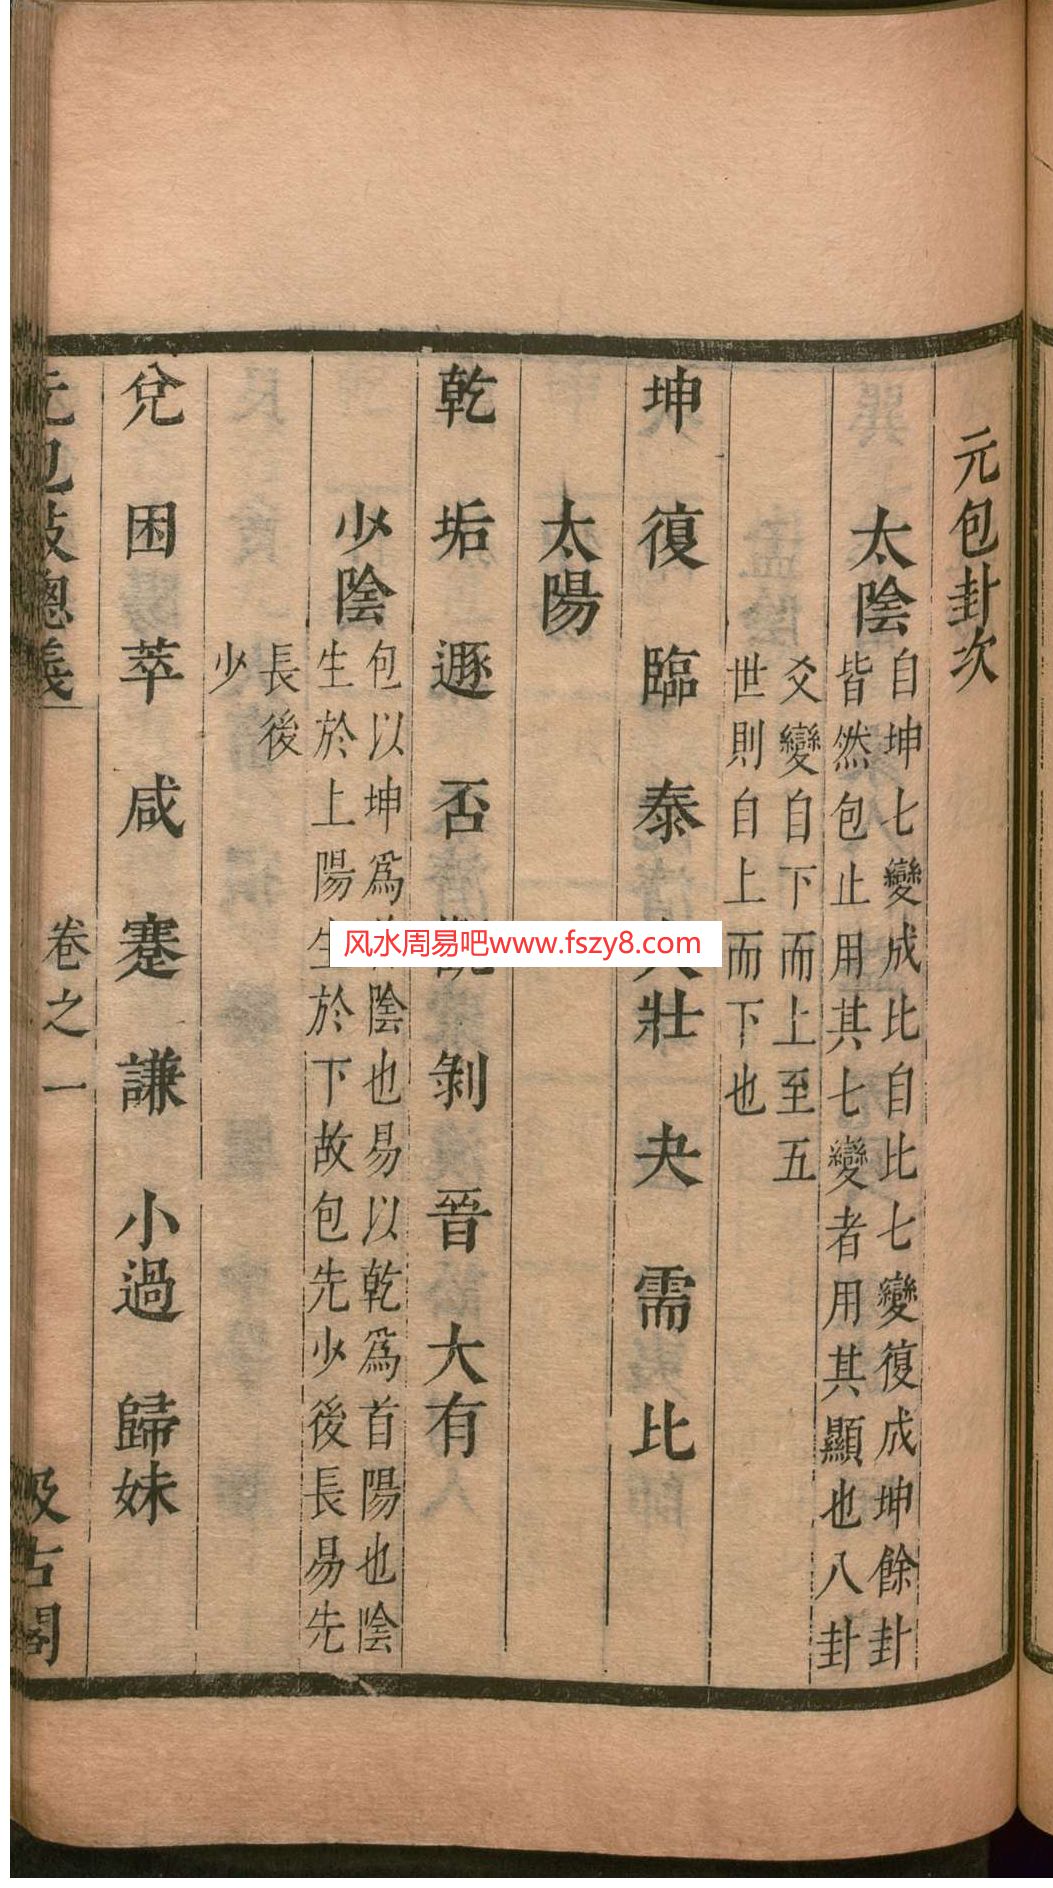 元包卦次
太陰
自坤七變成比自比七變復成坤餘卦
皆然包止用其七變者用其顯也八卦
爻變自下而上至五
世則自上而下也
坤 復 臨 泰 大壯 夬 需 比
太陽
乾 垢 遯 否 剝 晉 大有
少陰
包以坤爲 陰也易以乾爲首陽也陰
生於上陽生於下故包先少後長易先
長後
少
兌 困 萃 咸 蹇 謙 小過 歸妹
元包數總義
卷之一
汲古閣
风水周易吧www.fszy8.com